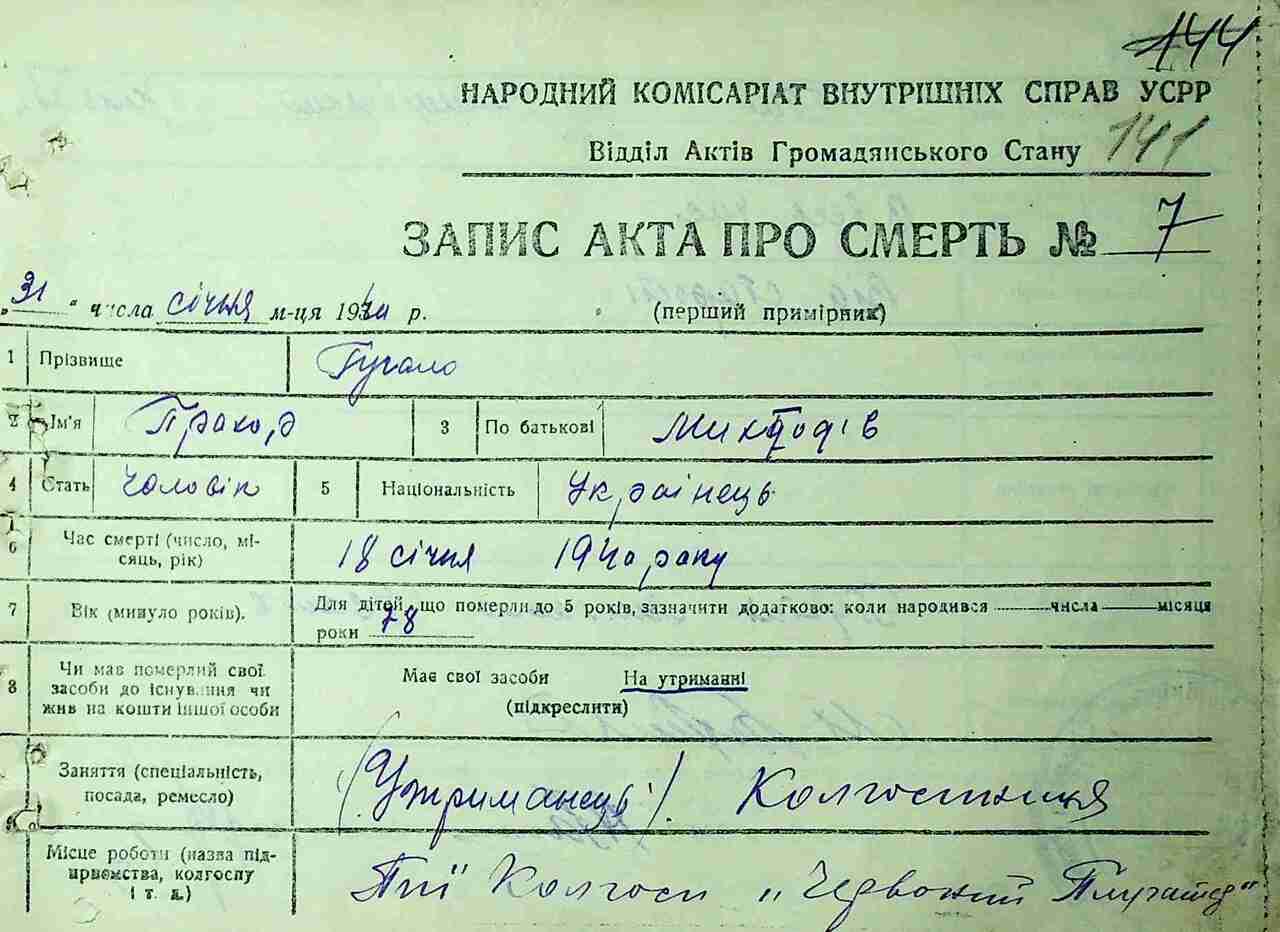 144
НАРОДНИЙ КОМІСАРІАТ ВНУТРІШНІХ СПРАВ УСРР
Відділ Актів Громадянського Стану 141
ЗАПИС АКТА ПРО СМЕРТЬ № 7
„31" числа січня м-ця 1940 р. (перший примірник)
1 Прізвище Гугало
2 Ім'я 3 По батькові
4 Стать Чоловік 5 Національність Українець
6 Час смерті (число, мі-
сяць, рік) 18 січня 1940 року
7 Вік (минуло років). Для дітей, що померли до 5 років, зазначити додатково: коли народився числа місяця
роки 78
8 Чи мав померлий свої
засоби до існування чи
жив на кошти іншої особи
Має свої засоби На утриманні
(підкреслити)
Заняття (спеціальність,
посада, ремесло) (Утриманець) Колгоспниця
Місце роботи (назва під-
приємства, колгоспу
і т. д.) Колгосп „Червоний Плугатар"